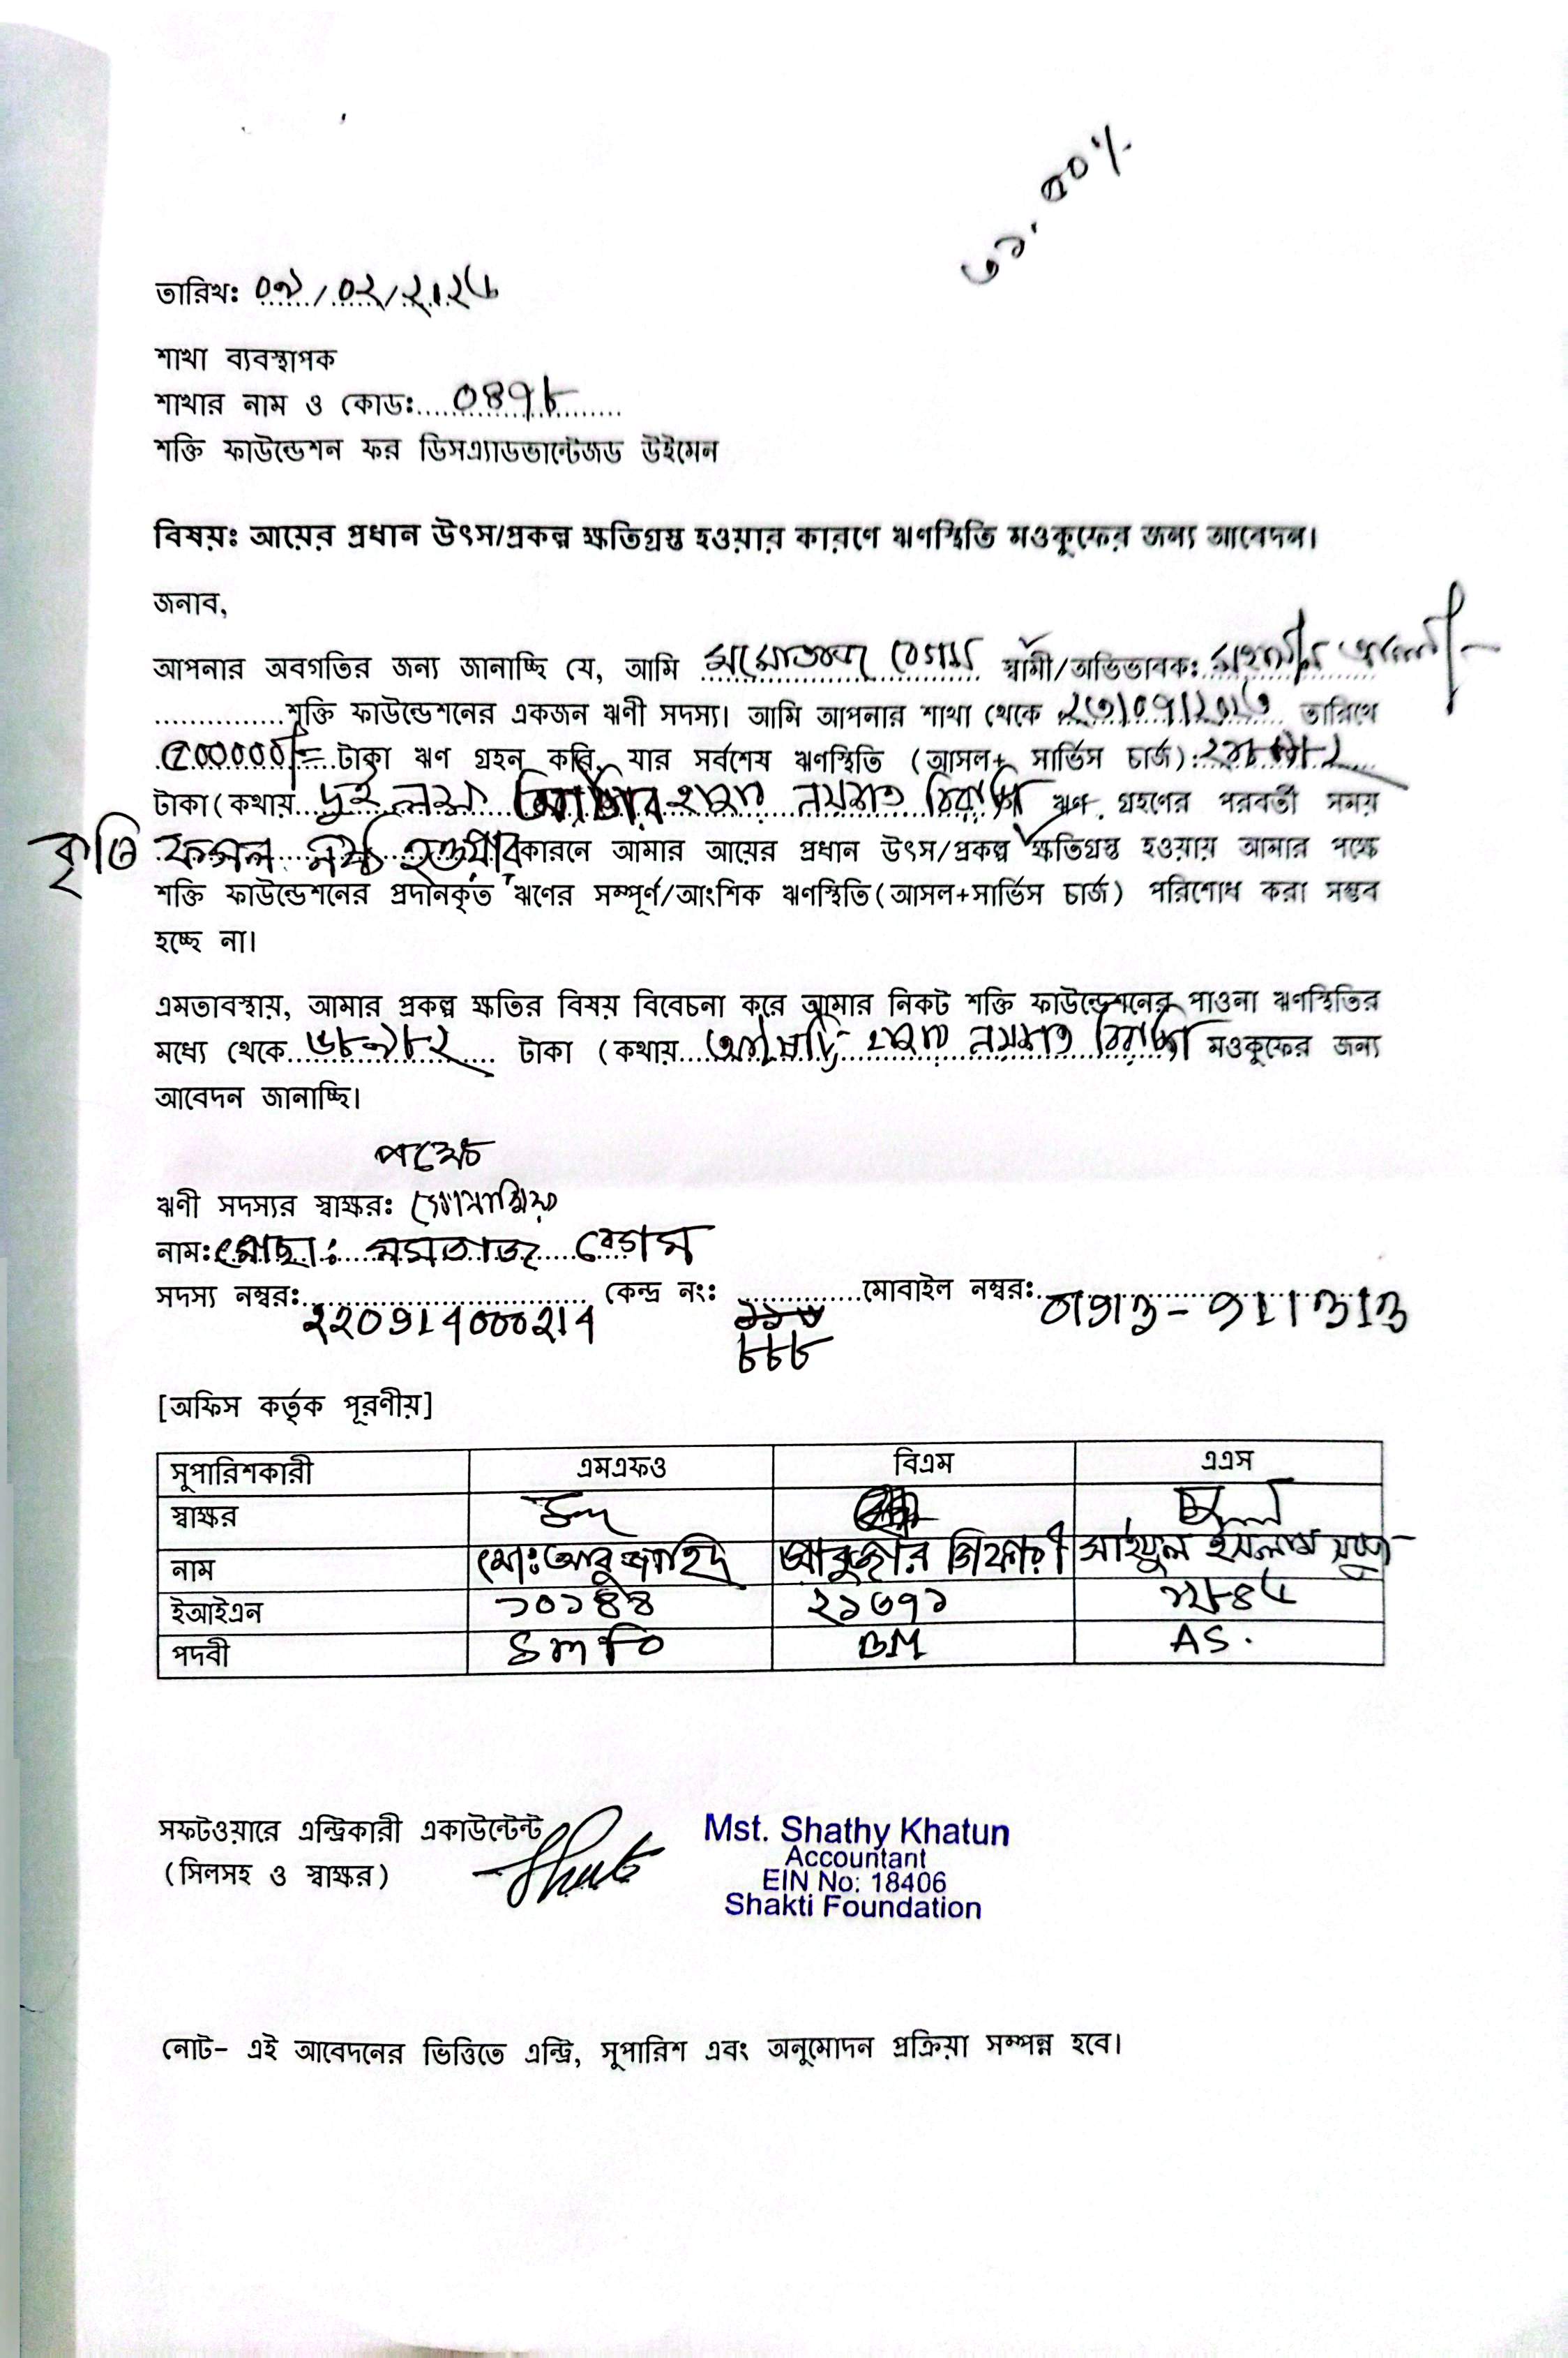 ৩১.০০%
তারিখঃ ০৯/০২/২০২৬
শাখা ব্যবস্থাপক
শাখার নাম ও কোডঃ....০৪৭৮....
শক্তি ফাউন্ডেশন ফর ডিসএ্যাডভান্টেজড উইমেন
বিষয়ঃ আয়ের প্রধান উৎস/প্রকল্প ক্ষতিগ্রস্ত হওয়ার কারণে ঋণস্থিতি মওকুফের জন্য আবেদন।
জনাব,
আপনার অবগতির জন্য জানাচ্ছি যে, আমি মমোতাজ বেগম স্বামী/অভিভাবক:
শক্তি ফাউন্ডেশনের একজন ঋণী সদস্য। আমি আপনার শাখা থেকে তারিখে
৫০০০০০/= টাকা ঋণ গ্রহন করি, যার সর্বশেষ ঋণস্থিতি (আসল+ সার্ভিস চার্জ):
টাকা(কথায় দুই লক্ষ হাজার নয়শত বিরাশি ঋণ গ্রহণের পরবর্তী সময়
কৃষি ফসল নষ্ট হওয়ার কারনে আমার আয়ের প্রধান উৎস/প্রকল্প ক্ষতিগ্রস্ত হওয়ায় আমার পক্ষে
শক্তি ফাউন্ডেশনের প্রদানকৃত ঋণের সম্পূর্ণ/আংশিক ঋণস্থিতি(আসল+সার্ভিস চার্জ) পরিশোধ করা সম্ভব
হচ্ছে না।
এমতাবস্থায়, আমার প্রকল্প ক্ষতির বিষয় বিবেচনা করে আমার নিকট শক্তি ফাউন্ডেশনের পাওনা ঋণস্থিতির
মধ্যে থেকে ৬৮৯৮২ টাকা (কথায় আটষট্টি হাজার নয়শত বিরাশি মওকুফের জন্য
আবেদন জানাচ্ছি।
পক্ষে
ঋণী সদস্যর স্বাক্ষরঃ
নাম: মোছা: মমতাজ বেগম
সদস্য নম্বরঃ কেন্দ্র নংঃ মোবাইল নম্বরঃ
২২০৭১4০০০২14 ০১৭১৩-৭১১৩১৩
৮৮৮
[অফিস কর্তৃক পূরণীয়]
সুপারিশকারী এমএফও বিএম এএস
স্বাক্ষর
নাম মো: আবু জাহিদ আবুজার গিফারী সাইফুল ইসলাম
ইআইএন ১০১৪৪ ২১৩৭১
পদবী SmFO BM AS.
সফটওয়ারে এন্ট্রিকারী একাউন্টেন্ট
(সিলসহ ও স্বাক্ষর)
Mst. Shathy Khatun
Accountant
EIN No: 18406
Shakti Foundation
নোট- এই আবেদনের ভিত্তিতে এন্ট্রি, সুপারিশ এবং অনুমোদন প্রক্রিয়া সম্পন্ন হবে।